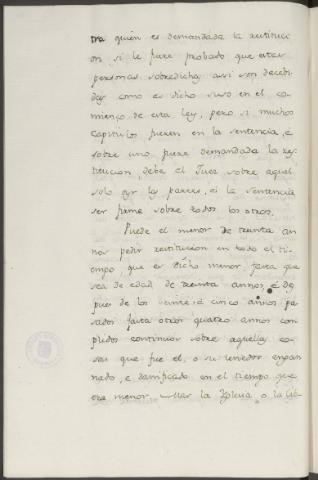 tra quién es demandada la restituci
on si le fuere probado que estas
personas sobredichas assi son decebi
das como es dicho suso en el co
mienço de esta ley, pero si muchos
capitulos fueren en la sentencia, é
sobre uno fuere demandada la res
titucion, debe el Juez sobre aquel
solo oyr las partes, é la sentencia
ser firme sobre todos los otros.
Puede el menor de treinta an
nos pedir restitucion en todo el ti
empo que es dicho menor, fasta que
sea de edad de treinta annos, é des
pues de los veinte é cinco annos pa
sados fasta otros quatro annos com
plidos continuos sobre aquellas co
sas que fue el, o su tenedor engan
nado, e danificado en el tiempo que
era menor. Mas la Iglesia o la Cib-